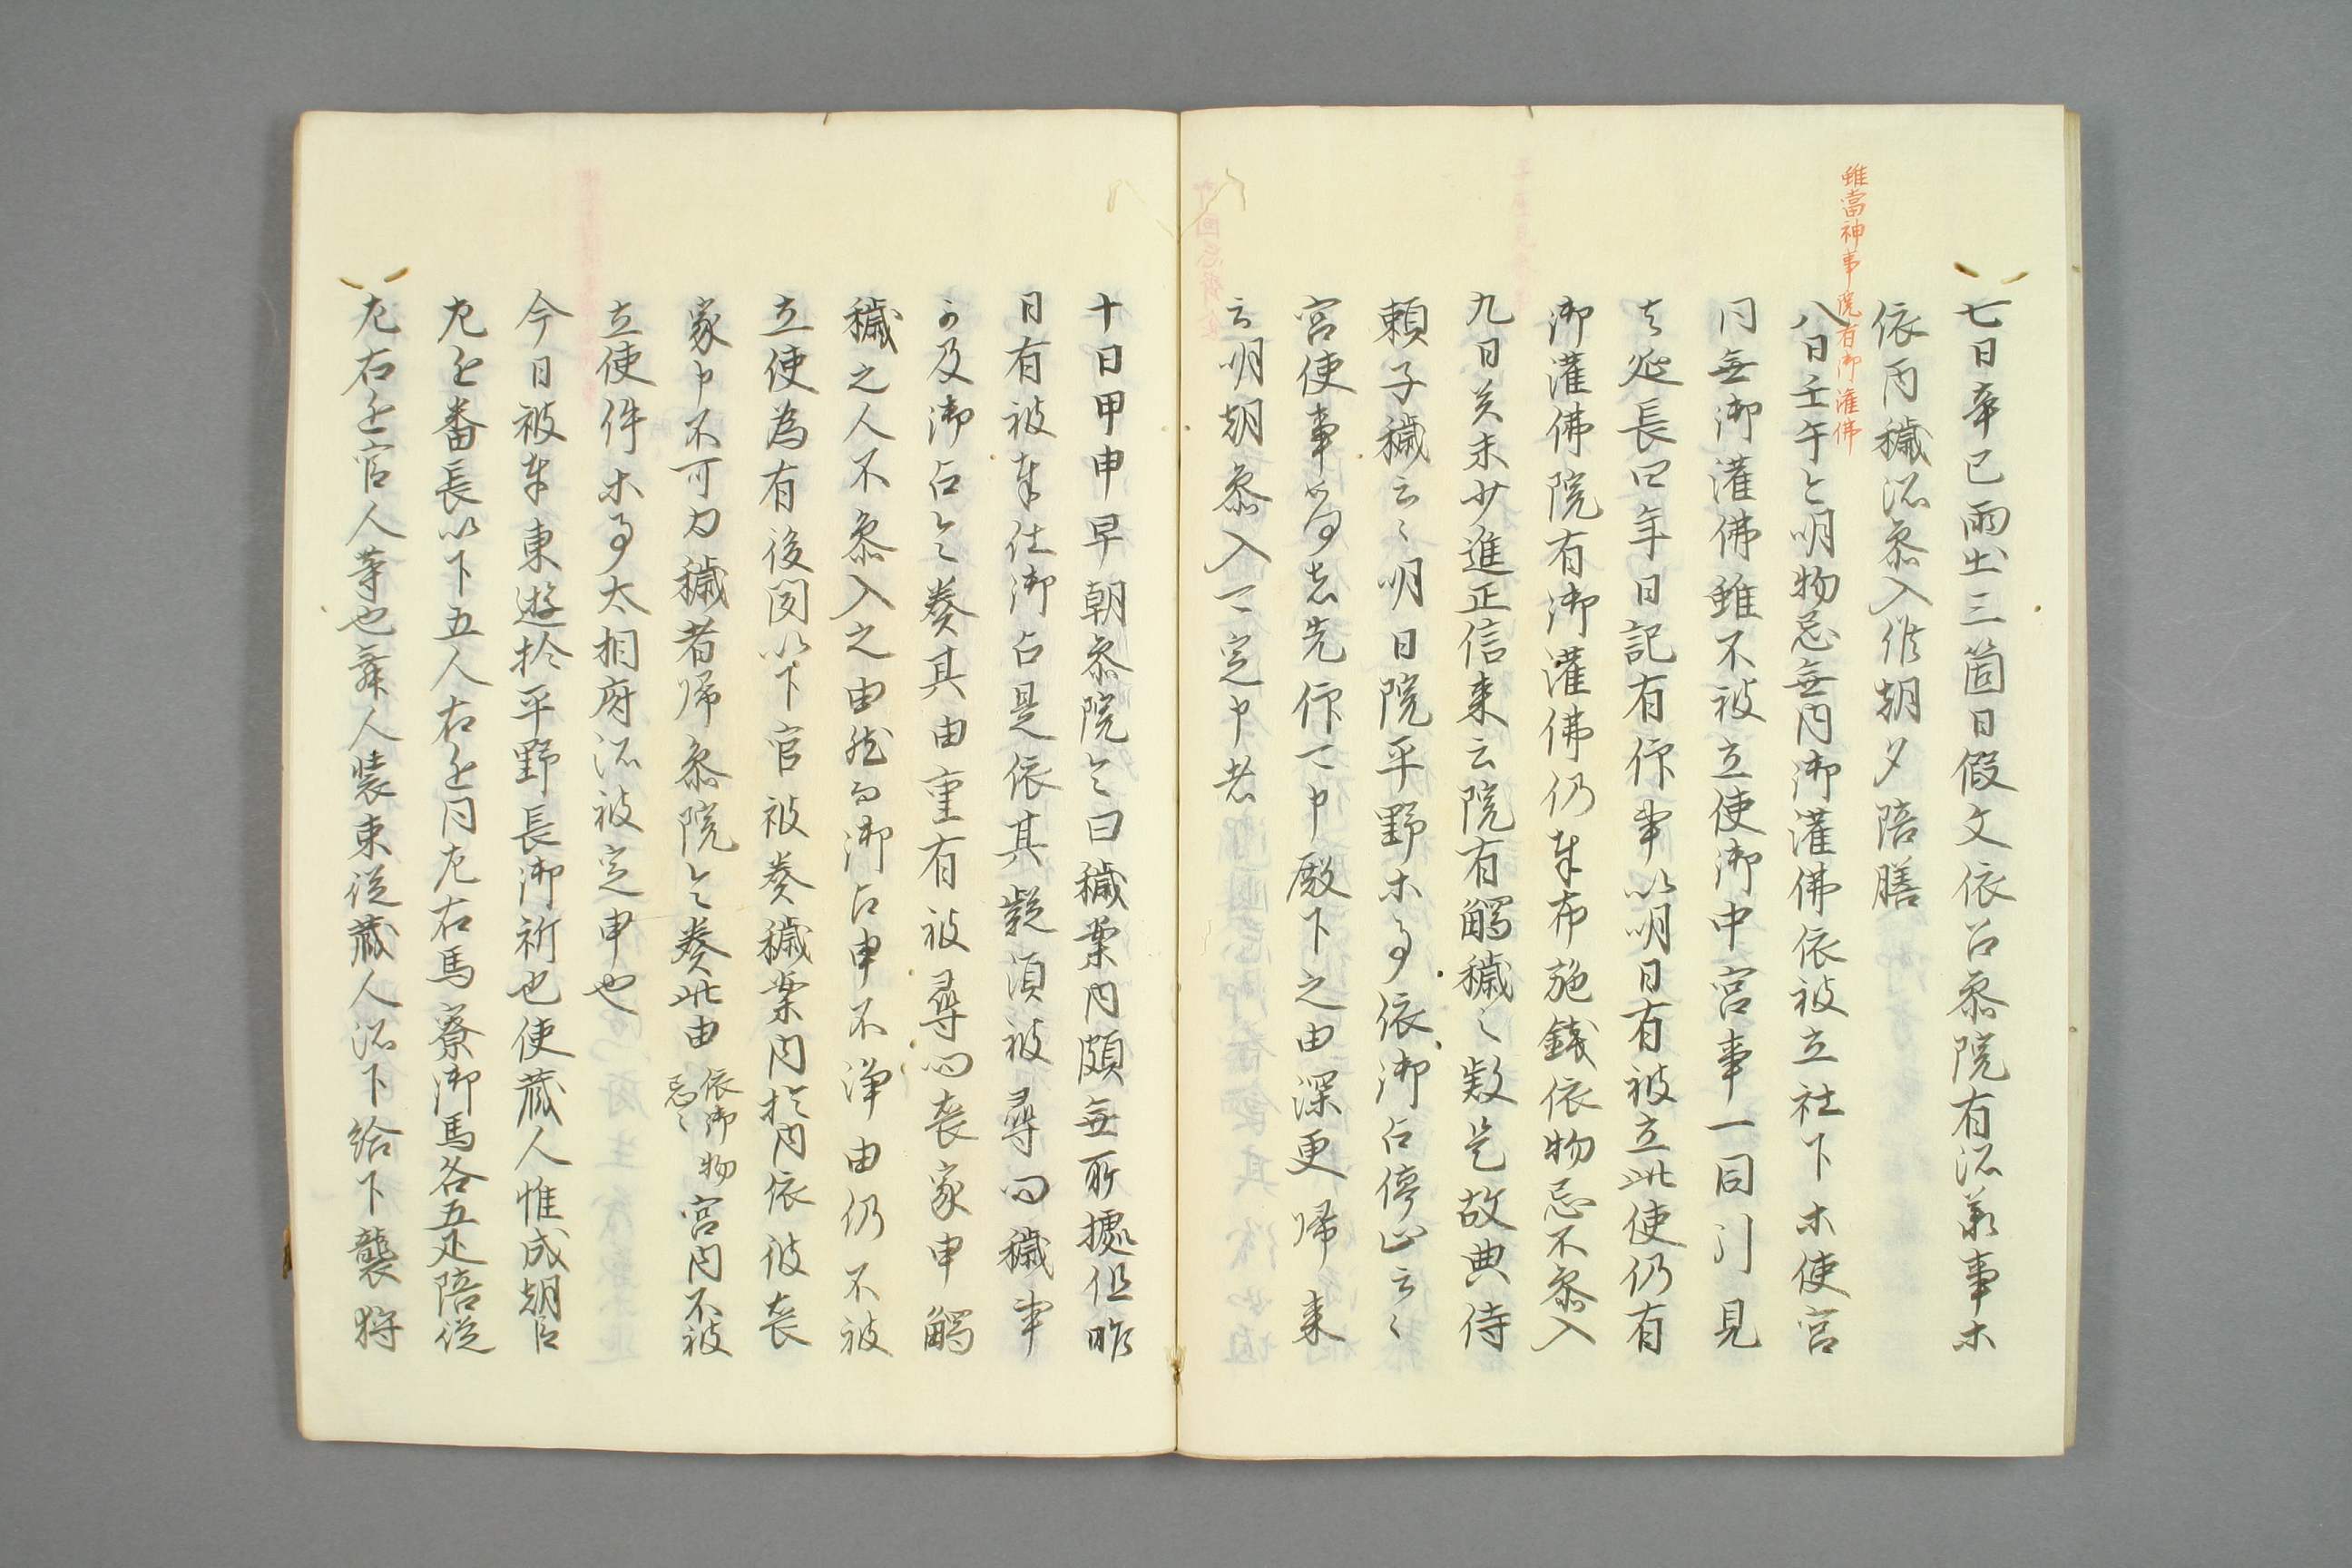 雖當神事院有御灌佛
七日辛巳雨出三箇日假文依召參院有所勞事ホ
依丙穢不參入候朝夕陪膳
八日壬午々明物忌無内御灌佛依被立社下ホ使宮
同無御灌佛雖不被立使御中宮事一同引見
去延長四年日記有仰事以明日有被立此使仍有
御灌佛院有御灌佛仍奉布施錢依物忌不參入
九日癸未少進正信来云院有觸穢之疑是故典侍
頼子穢云々明日院平野ホ事依御占停止云々
宮使事先仰可申殿下之由深更帰来
云明朝參入可定申者
十日甲申早朝參院令曰穢案内頗無所據但昨
日有被奉仕御占是依其疑須被尋問穢事
不及御占令奏其由重有被尋問喪家申觸
穢之人不參入之由然而御占申不浄由仍不被
立使為有後聞以下官被奏穢案内於内依彼喪
家申不可為穢者帰參院令奏此由依御物忌々宮内不被
立使件ホ事太相府所被定申也
今日被奉東遊於平野長御祈也使蔵人惟成朝臣
左近番長以下五人右近同左右馬寮御馬各五疋陪従
左右近官人等也舞人装束従蔵人所下給下襲狩